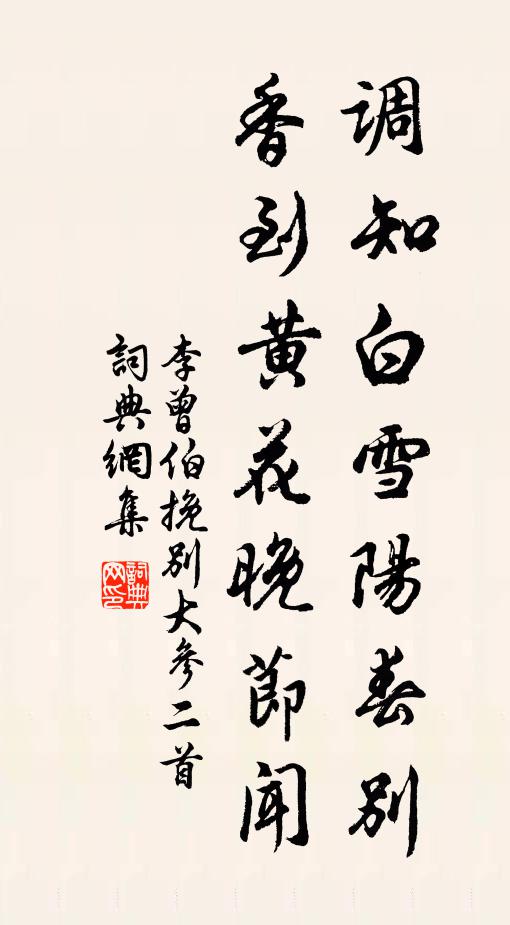 調知白雪陽春別
香到黃花晚節聞
李曾伯挽別大參二首
詞典網集
詞典網印